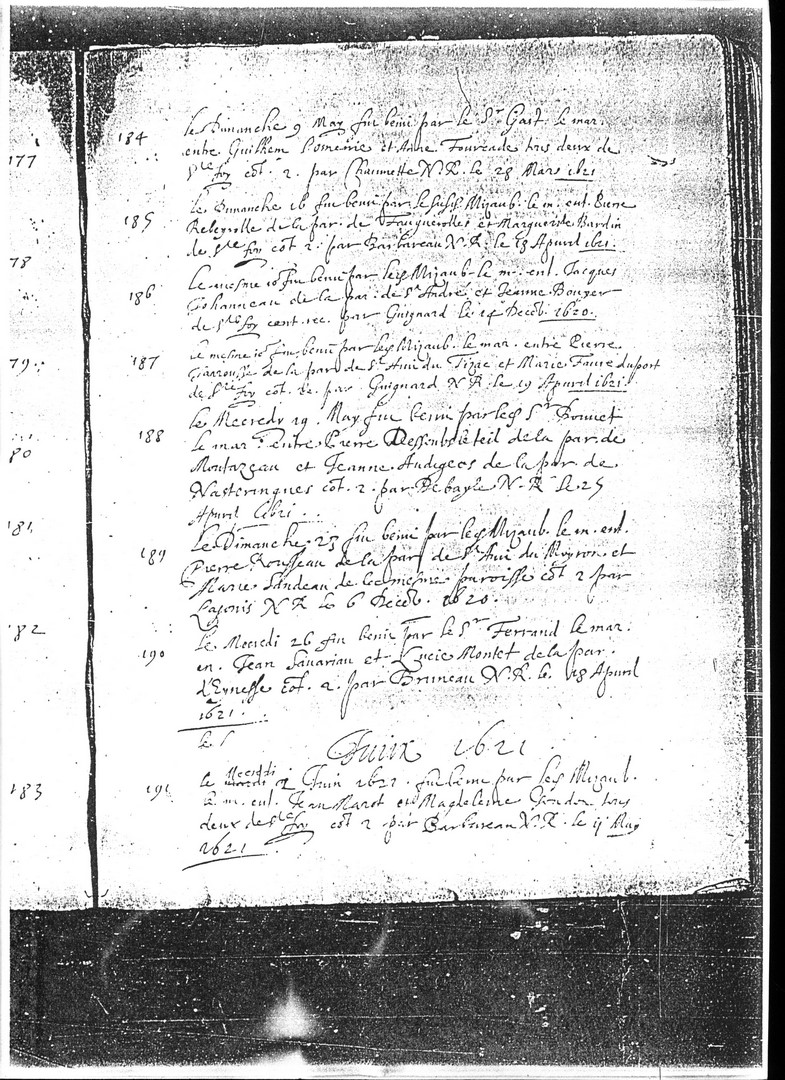 177
78
79.
80
181
182
183
184 le Dimanche 9 May fut beni par le Sr Gast. le mar.
entre Guilhem Pomerie et Anne Fourcade tous deux de
Ste foy cot. 2. par Chaumette N.R. le 28 Mars 1621
185 le Dimanche 16 fut beni par le Mizaub. le m. ent.
Rebeyrolle de la par. de Fauguerolles et Marguerite Bardin
de Ste foy cot 2. par Barbareau N.R. le 18 Apuril 1621.
186 le mesme io fut beni par Mizaub. le m. ent. Jacques
Johanneau de la par. de St André et Jeanne Bouyer
de Ste foy cent. rec. par Guignard le 14 Decēb. 1620.
187 le mesme io fut beni par Mizaub. le mar. entre Pierre
de la par. de St Aui du Tizac et Marie Faure du port
de Ste foy cot. re. par Guignard N.R. le 19 Apuril 1621.
188 le Mecredy 19. May fut beni par Sr Bonnet
le mar. entre Pierre de la par. de
Montazeau et Jeanne Audigees de la par. de
Nasteringues cot. 2. par Debayle N.R. le 25
Apuril 1621.
189 Le Dimanche 23 fut beni par Mizaub. le m. ent.
Pierre Rousseau de la par. de St Aui du Moyron et
Marie Landeau de la mesme paroisse cot 2 par
Lajonis N.R. le 6 Decēb. 1620.
190 Le Mecredi 26 fut beni par le Sr Ferrand le mar.
en. Jean Sauariau et Lucie Montet de la par.
d'Eynesse cot. 2. par Bruneau N.R. le 18 Apuril
1621.
le
Juin 1621
191 le Mecredi 2 Juin 1621. fut beni par Mizaub.
le m. ent. Jean Marot et Magdeleine tous
deux de Ste foy cot 2 par Barbareau N.R. le ij May
1621